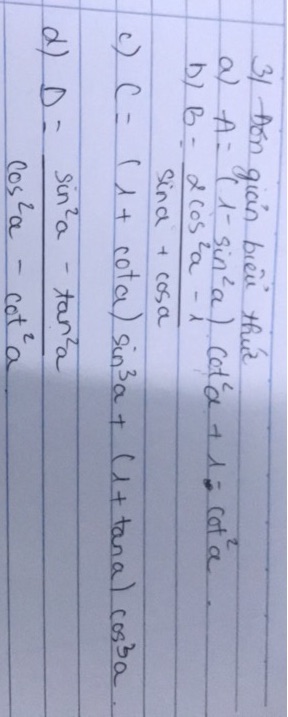 3) Đơn giản biểu thức
a) A = (1 - sin²a) cot²a + 1 - cot²a.
b) B = 2cos²a - 1
sina + cosa
c) C = (1 + cota) sin³a + (1 + tana) cos³a.
d) D = sin²a - tan²a
cos²a - cot²a